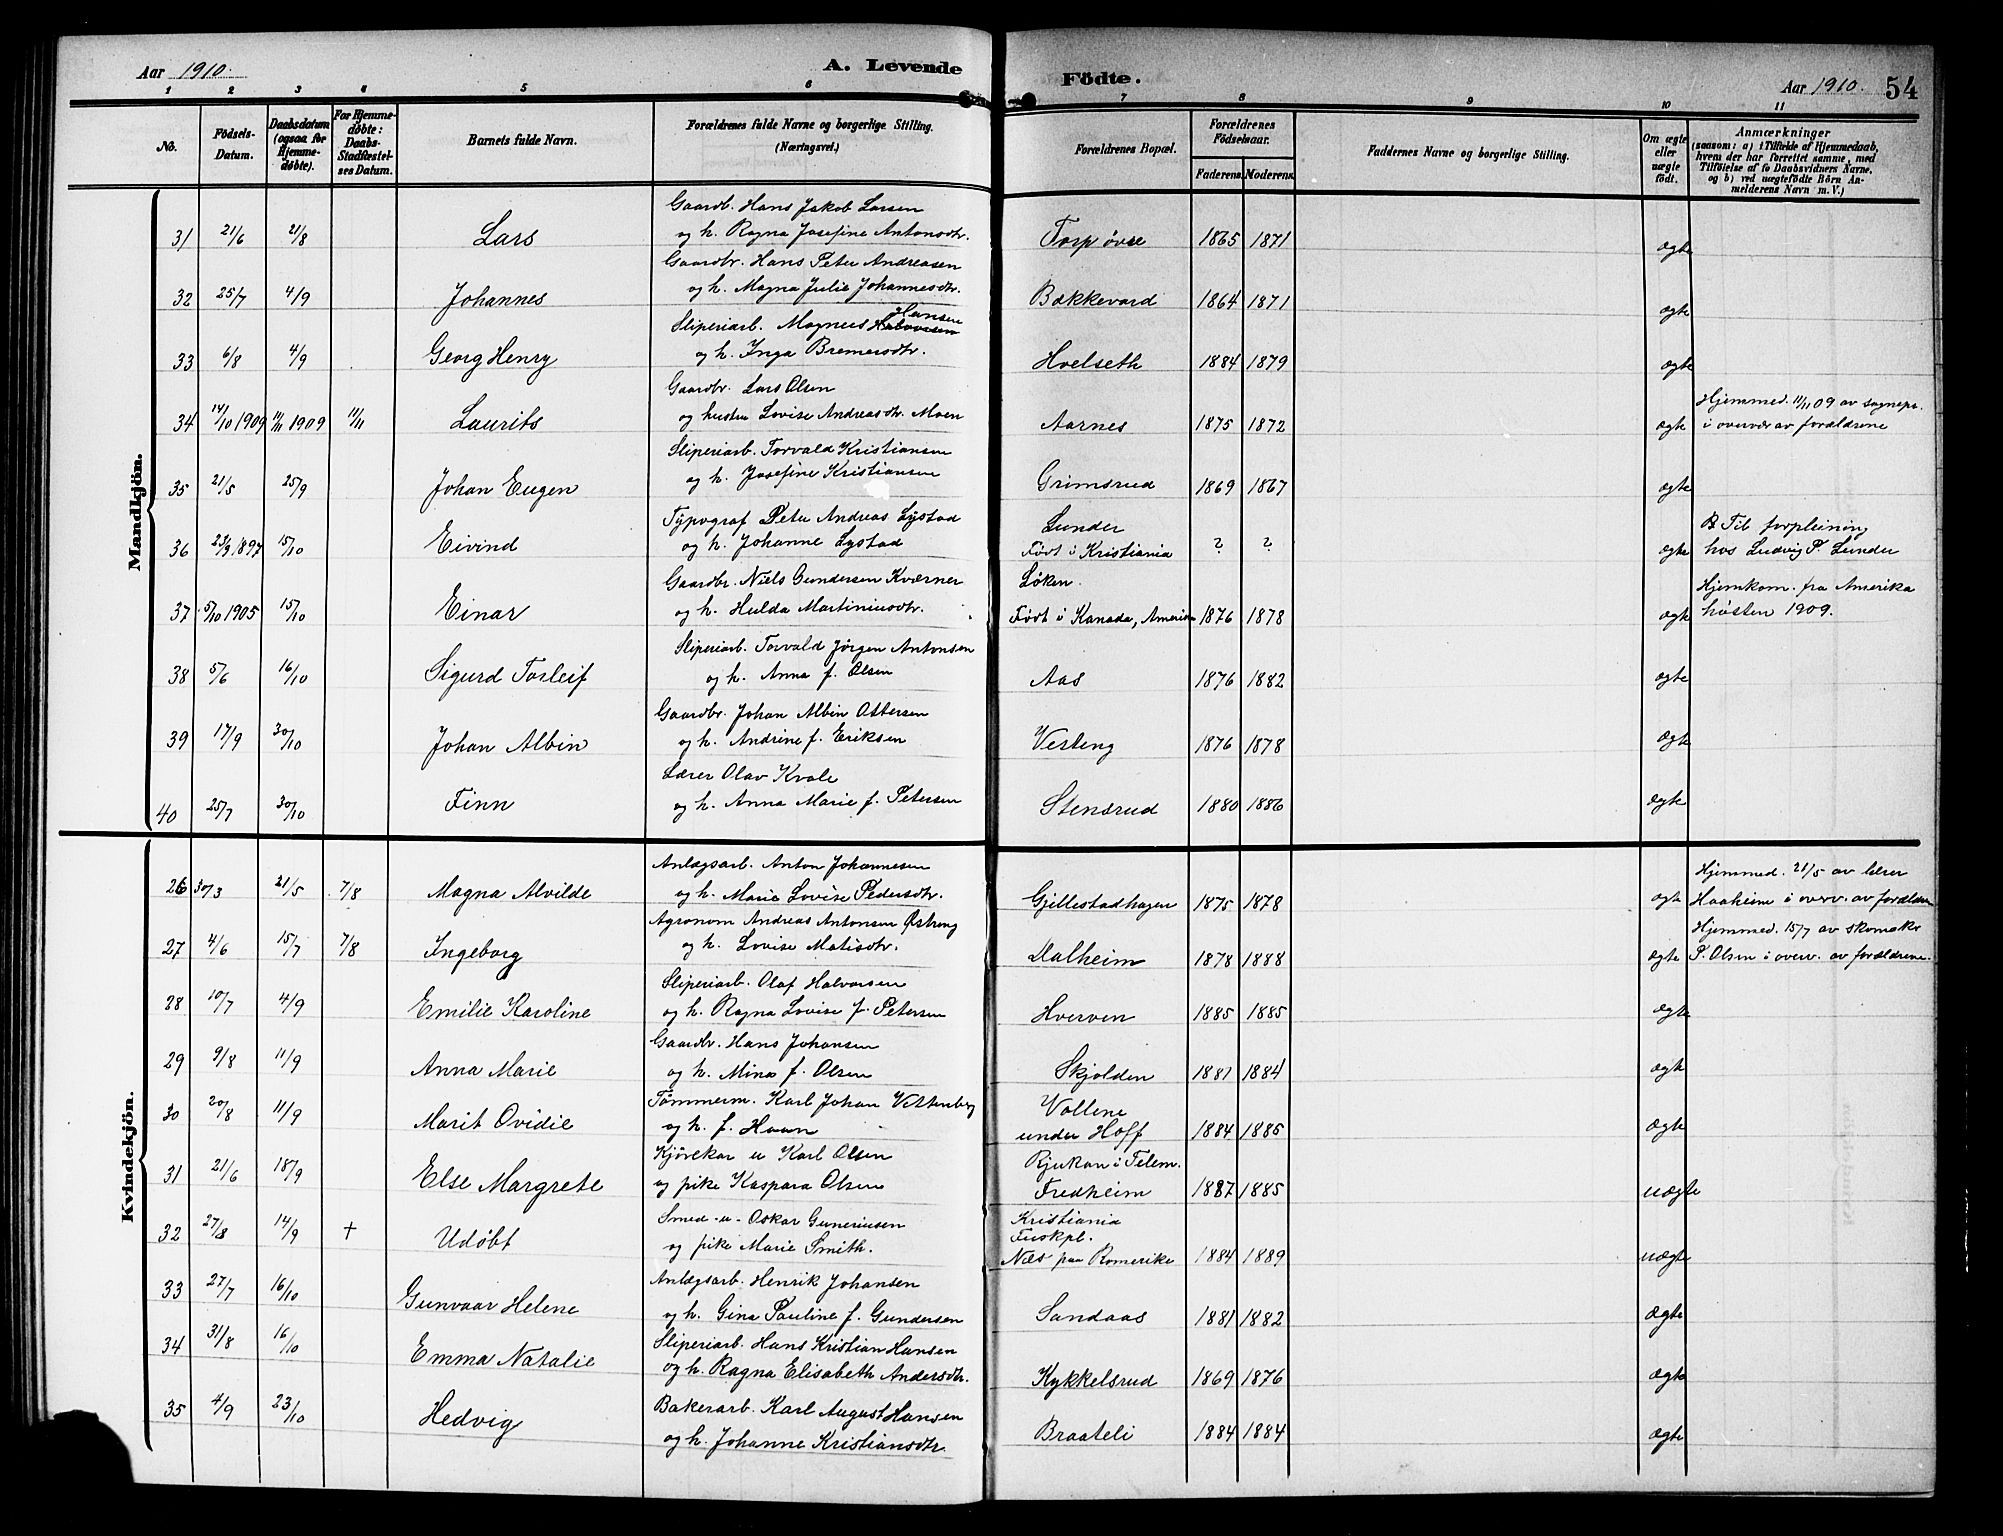 Aar 1910. A. Levende Födte. Aar 1910. 54
1 2 3 4 5 6 7 8 9 10 11
No. Födsels-Datum. Daabsdatum (ogsaa for Hjemme-döbte). For Hjemme-döbte: Daabs-Stadfæstel-ses Datum. Barnets fulde Navn. Forældrenes fulde Navne og borgerlige Stilling. (Næringsvei.) Forældrenes Bopæl. Forældrenes Födselsaar. Faderens. Moderens. Faddernes Navne og borgerlige Stilling. Om ægte eller uægte födt. Anmærkninger (saasom: a) i Tilfælde af Hjemmedaab, hvem der har forrettet samme, med Tilföielse af to Daabsvidners Navne, og b) ved uægtefödte Börn An-melderens Navn m. V.)
Mandkjön.
Gaardb. Hans Jakob Larsen
31 21/6 21/8 Lars og h. Ragna Josefine Antonsdtr. Torp øvre 1865 1871 ægte
Gaardbr. Hans Peter Andreasen
32 25/7 4/9 Johannes og h. Magna Julie Johannesdtr. Bækkevard 1864 1871 ægte
Sliperiarb. Magnus Halvorsen Hansen
33 6/8 4/9 Georg Henry og h. Inga Bremersdtr. Hvelseth 1884 1879 ægte
Gaardbr. Lars Olsen Hjemmed. 11/11 09 av sognepr.
34 14/10 1909 11/11 1909 11/11 Laurits og hustru Lovise Andreasdtr. Moen Aarnes 1875 1872 ægte i overvær av forældrene
Sliperiarb. Torvald Kristiansen
35 21/5 25/9 Johan Eugen og h. Josefine Kristiansen Grimsrud 1869 1867 ægte
Typograf Peter Andreas Lystad Lunder Til forpleining
36 23/9 1897 15/10 Eivind og h. Johanne Lystad Født i Kristiania ? ? ægte hos Ludvig P. Lunder
Gaardbr. Niels Gundersen Kværner Løken. Hjemkom. fra Amerika
37 5/10 1905 15/10 Einar og h. Hulda Martiniusdtr. Født i Kanada, Amerika 1876 1878 ægte høsten 1909.
Sliperiarb. Torvald Jørgen Antonsen
38 5/6 16/10 Sigurd Torleif og h. Anna f. Olsen Aas 1876 1882 ægte
Gaardbr. Johan Albin Ottersen
39 17/9 30/10 Johan Albin og h. Andrine f. Eriksen Vesteng 1876 1878 ægte
Lærer Olav Kvale
40 25/7 30/10 Finn og h. Anna Marie f. Petersen Stensrud 1880 1886 ægte
Kvindekjön.
Anlægsarb. Anton Johannesen Hjemmed. 21/5 av lærer
26 30/3 21/5 7/8 Magna Alvilde og h. Marie Lovise Pedersdtr. Gjellestadhagen 1875 1878 ægte Haaheim i overv. av forældrene
Agronom Andreas Antonsen Østreng Hjemmed. 15/7 av skomaker
27 4/6 15/7 7/8 Ingeborg og h. Lovise Matisdtr. Dalheim 1878 1888 ægte P. Olsen i overv. av forældrene.
Sliperiarb. Olaf Halvorsen
28 10/7 4/9 Emilie Karoline og h. Ragna Lovise f. Petersen Hverven 1885 1885 ægte
Gaardbr. Hans Johansen
29 9/8 11/9 Anna Marie og h. Mina f. Olsen Skjolden 1881 1884 ægte
Tømmerm. Karl Johan Vittenberg Vollene
30 20/8 11/9 Marit Ovidie og h. f. Haavn under Hoff 1884 1885 ægte
Kjørekar u Karl Olsen Rjukan i Telem.
31 21/6 18/9 Else Margrete og pike Kaspara Olsen Fredheim 1887 1885 uægte
Smed -u- Oskar Guneriusen Kristiania
32 27/8 14/9 + Udøbt og pike Marie Smith. Fuskpl.
Næs paa Romerike 1884 1889 uægte
Anlægsarb. Henrik Johansen
33 27/7 16/10 Gunvaar Helene og h. Gina Pauline f. Gundersen Sandaas 1881 1882 ægte
Sliperiarb. Hans Kristian Hansen
34 31/8 16/10 Emma Natalie og h. Ragna Elisabeth Andersdtr. Kykkelsrud 1869 1876 ægte
Bakerarb. Karl August Hansen
35 4/9 23/10 Hedvig og h. Johanne Kristiansdtr. Braateli 1884 1884 ægte